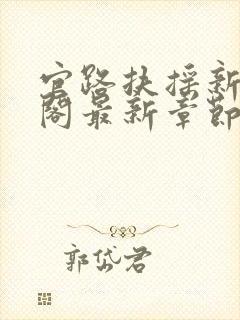 官路扶摇新
阁最新章节
郭岱君